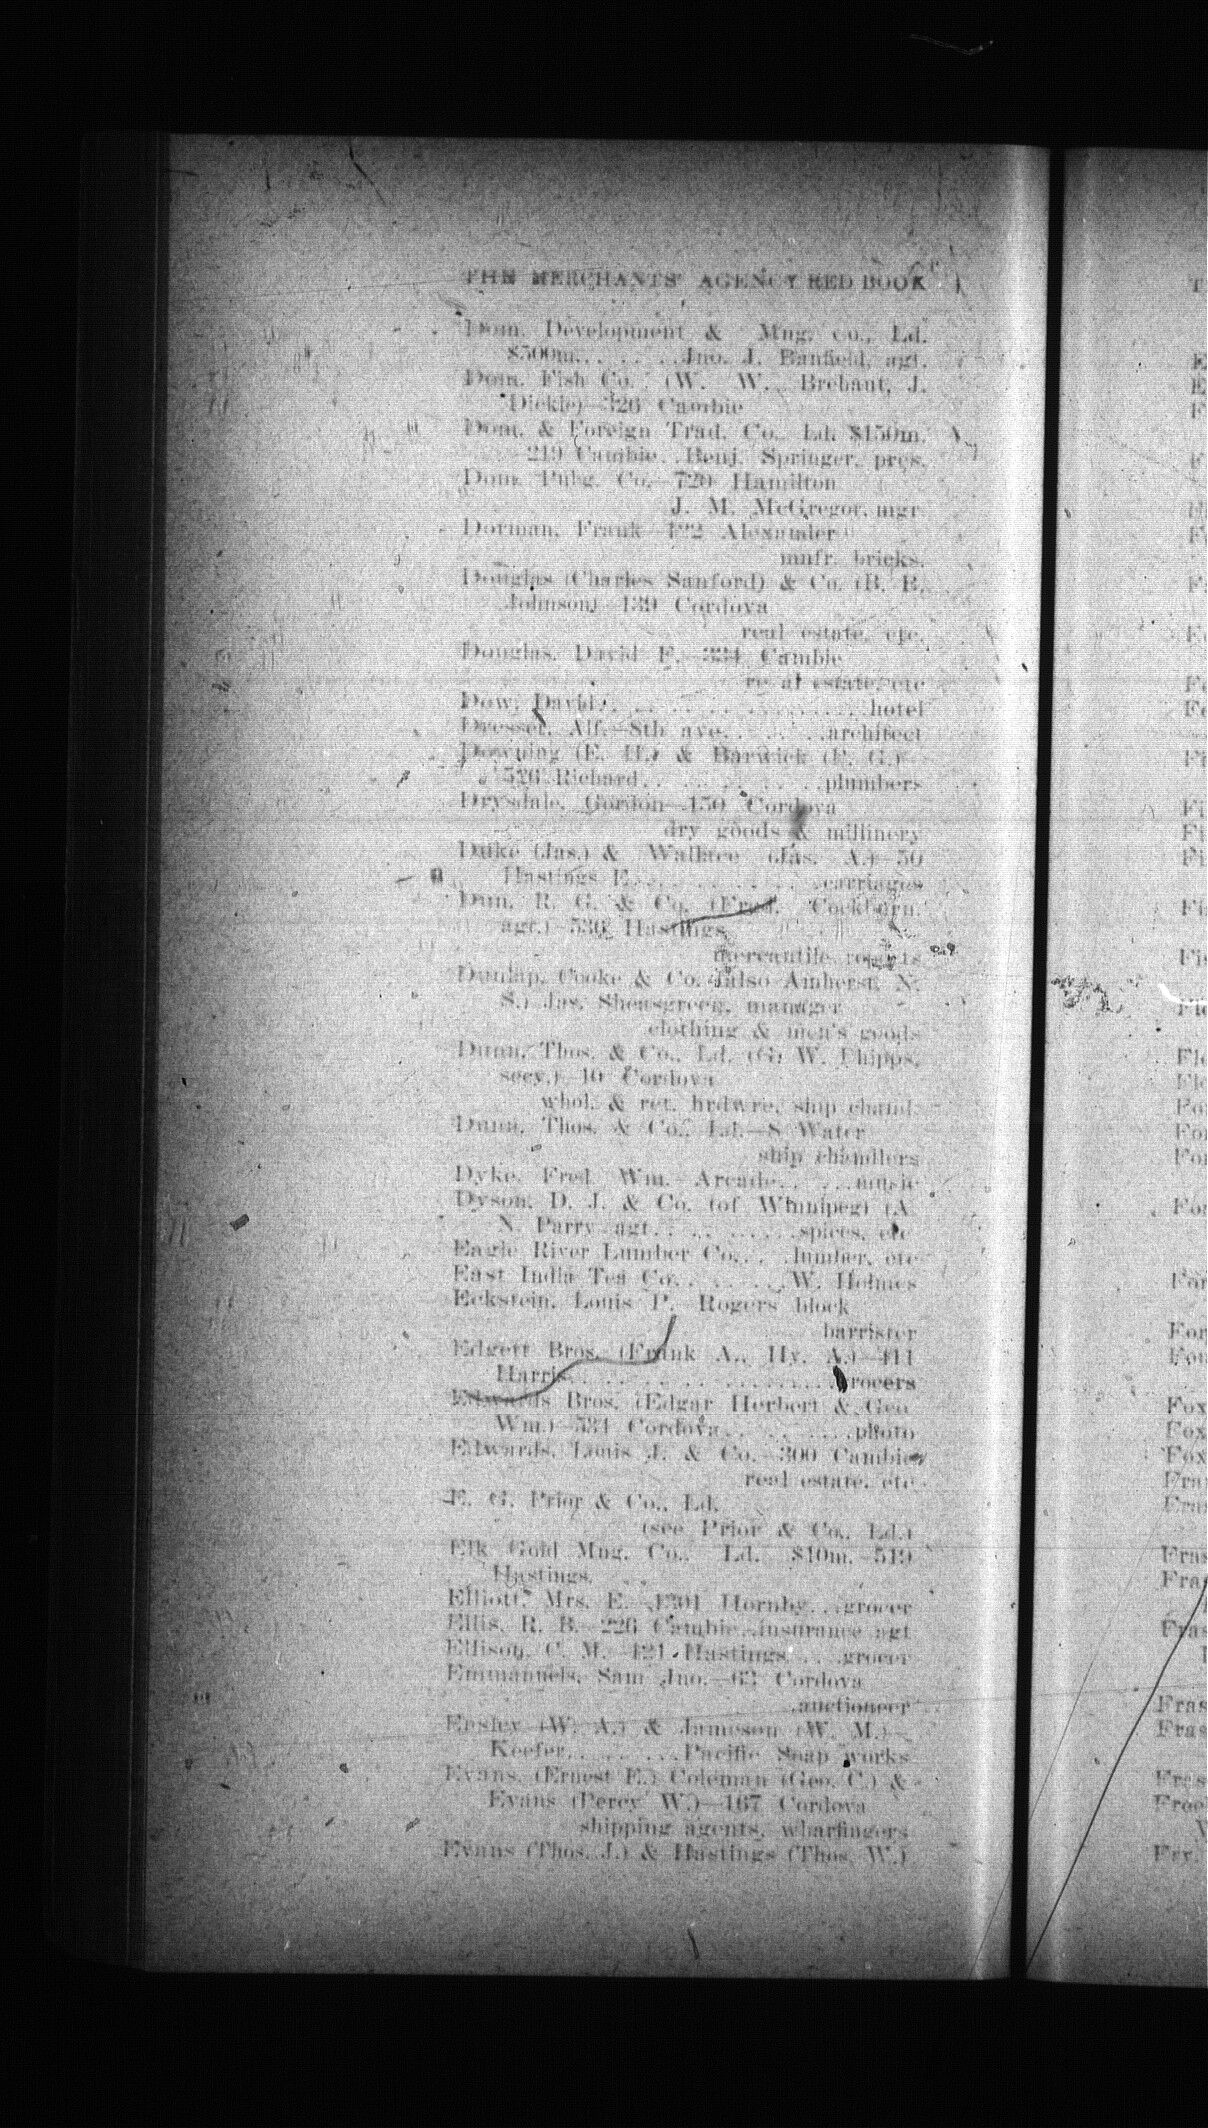 THE MERCHANTS' AGENCY RED BOOK
Dom. Development & Mng. Co., Ld.
$500m........Jno. J. Banfield, agt.
Dom. Fish Co. (W. W. Brehaut, J.
Dickie)—326 Cambie
Dom. & Foreign Trad. Co., Ld. $150m.
219 Cambie..Benj. Springer, pres.
Dom. Pubg. Co.—720 Hamilton
J. M. McGregor, mgr
Dorman, Frank—122 Alexander
mnfr. bricks.
Douglas (Charles Sanford) & Co. (B. B.
Johnson)—139 Cordova
real estate, etc.
Douglas, David F.—334 Cambie
real estate, etc
Dow, David....................hotel
Dresser, Alf.—8th ave.......architect
Downing (E. H.) & Barwick (F. G.)—
526 Richard.............plumbers
Drysdale, Gordon—150 Cordova
dry goods & millinery
Duke (Jas.) & Wallace (Jas. A.)—50
Hastings E.............carriages
Dun, R. G. & Co. (Fred. Cockburn,
agt.)—536 Hastings
mercantile reports
Dunlap, Cooke & Co. (also Amherst, N.
S.) Jas. manager
clothing & men's goods
Dunn, Thos. & Co., Ld. (G. W. Phipps,
secy.)—10 Cordova
whol. & ret. hrdwre, ship chand.
Dunn, Thos. & Co., Ld.—8 Water
ship chandlers
Dyke, Fred. Wm.—Arcade......music
Dyson, D. J. & Co. (of Winnipeg) (A.
N. Parry agt...........spices, etc
Eagle River Lumber Co....lumber, etc
East India Tea Co.........W. Holmes
Eckstein, Louis P.—Rogers block
barrister
Edgett Bros. (Frank A., Hy. A.)—411
Harris....................grocers
Edwards Bros. (Edgar Herbert & Geo.
Wm.)—534 Cordova..........photo
Edwards, Louis J. & Co.—300 Cambie
real estate, etc
E. G. Prior & Co., Ld.
(see Prior & Co., Ld.)
Elk Gold Mng. Co., Ld. $10m.—519
Hastings.
Elliott, Mrs. E.—1301 Hornby...grocer
Ellis, R. B.—226 Cambie..insurance agt
Ellison, C. M.—421 Hastings....grocer
Emmanuels, Sam Jno.—63 Cordova
auctioneer
Ensley (W. A.) & Jameson (W. M.)—
Keefer........Pacific Soap works
Evans, (Ernest E.) Coleman (Geo. C.) &
Evans (Percy W.)—167 Cordova
shipping agents, wharfingers
Evans (Thos. J.) & Hastings (Thos. W.)